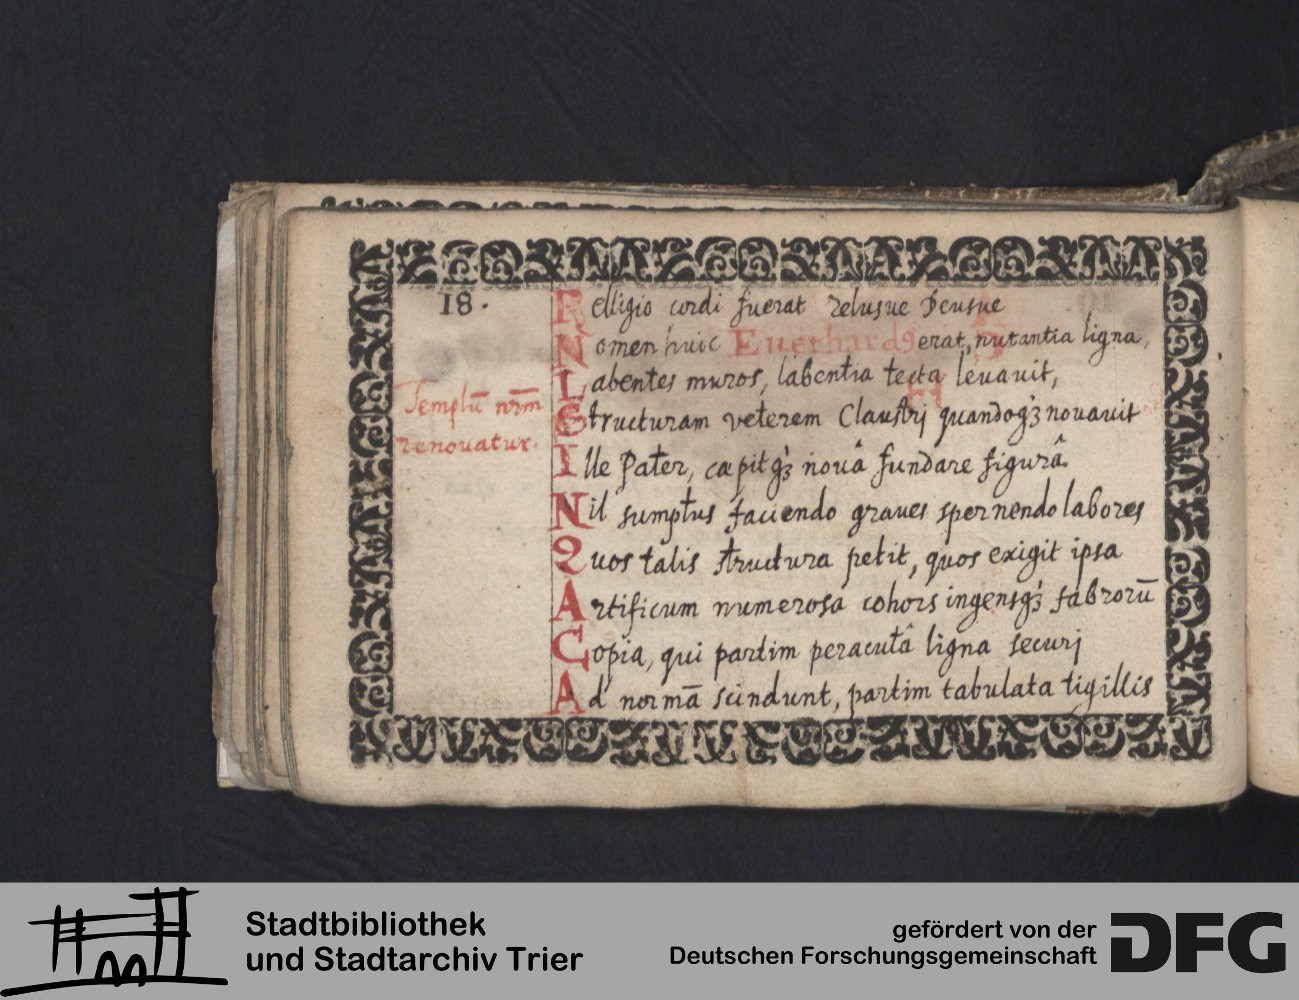 18.
Relligio cordi fuerat zelusue Deusue
Nomen huic Euerhardg erat, nutantia ligna,
Labentes muros, labentia tecta leuauit,
Templū nrm
Structuram veterem Claustrj quandoqꝫ nouauit
renouatur.
Ille Pater, cæpitqꝫ nouâ fundare figurâ
Nil sumptus faciendo graues spernendo labores
Quos talis structura petit, quos exigit ipsa
Artificum numerosa cohors ingensqꝫ fabrorū
Copia, qui partim peracutâ ligna securj
Ad normā scindunt, partim tabulata tigillis
Stadtbibliothek
und Stadtarchiv Trier
gefördert von der
Deutschen Forschungsgemeinschaft
DFG